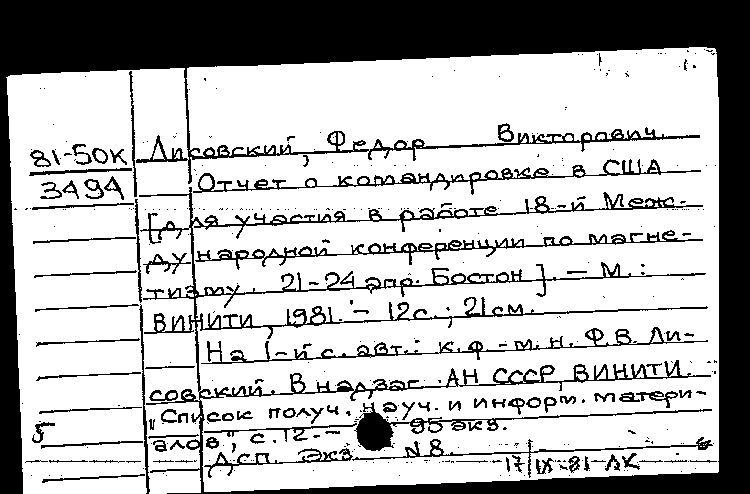 81-50К Лисовский, Федор Викторович.
3494 Отчет о командировке в США
[для участия в работе 18-й Меж-
дународной конференции по магне-
тизму. 21-24 апр. Бостон]. – М.:
ВИНИТИ, 1981. – 12с.; 21см.
На 1-й с. авт.: к.ф.-м.н. Ф.В. Ли-
совский. В надзаг. АН СССР, ВИНИТИ.
"Список получ. науч. и информ. матери-
5 алов", с.12. – 95 экз.
Дсп. Экз. N8.
17/IX-81 ЛК